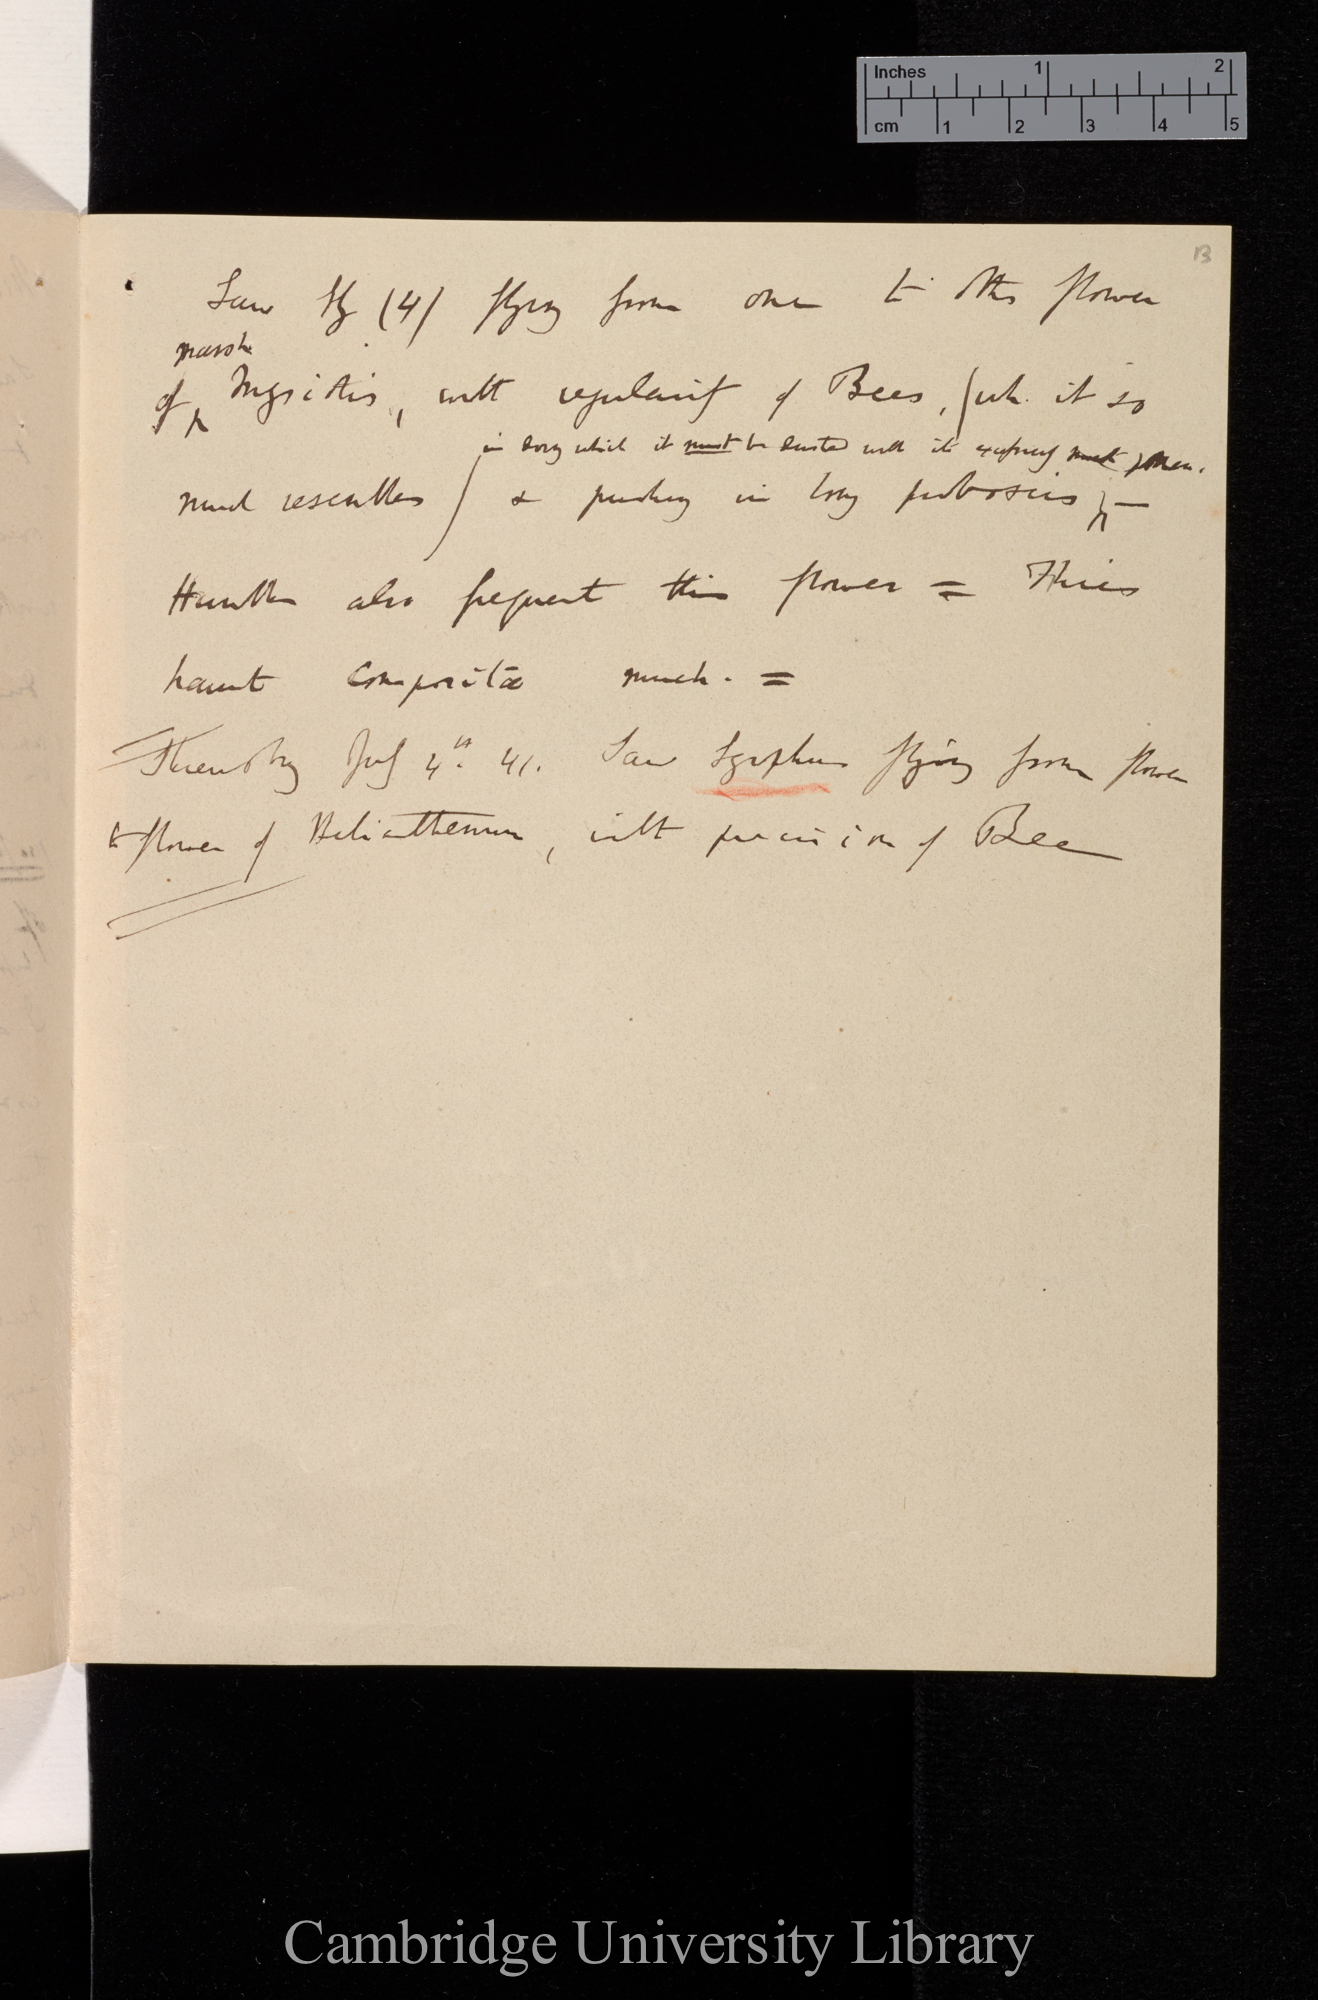 Inches 1 2
cm 1 2 3 4 5
13
Saw fly (4) flying from one to other flower
marsh
of Myosotis, with regularity of Bees, (wh. it so
in doing which it must be dusted with its extremely much pollen.
much resembles) & pushing in long proboscis, —
Humbles also frequent this flower = Flies
haunt Compositæ much. =
Thursday July 4th. 41. Saw Syrphus flying from flower
to flower of Helianthemum, with precision of Bee
Cambridge University Library